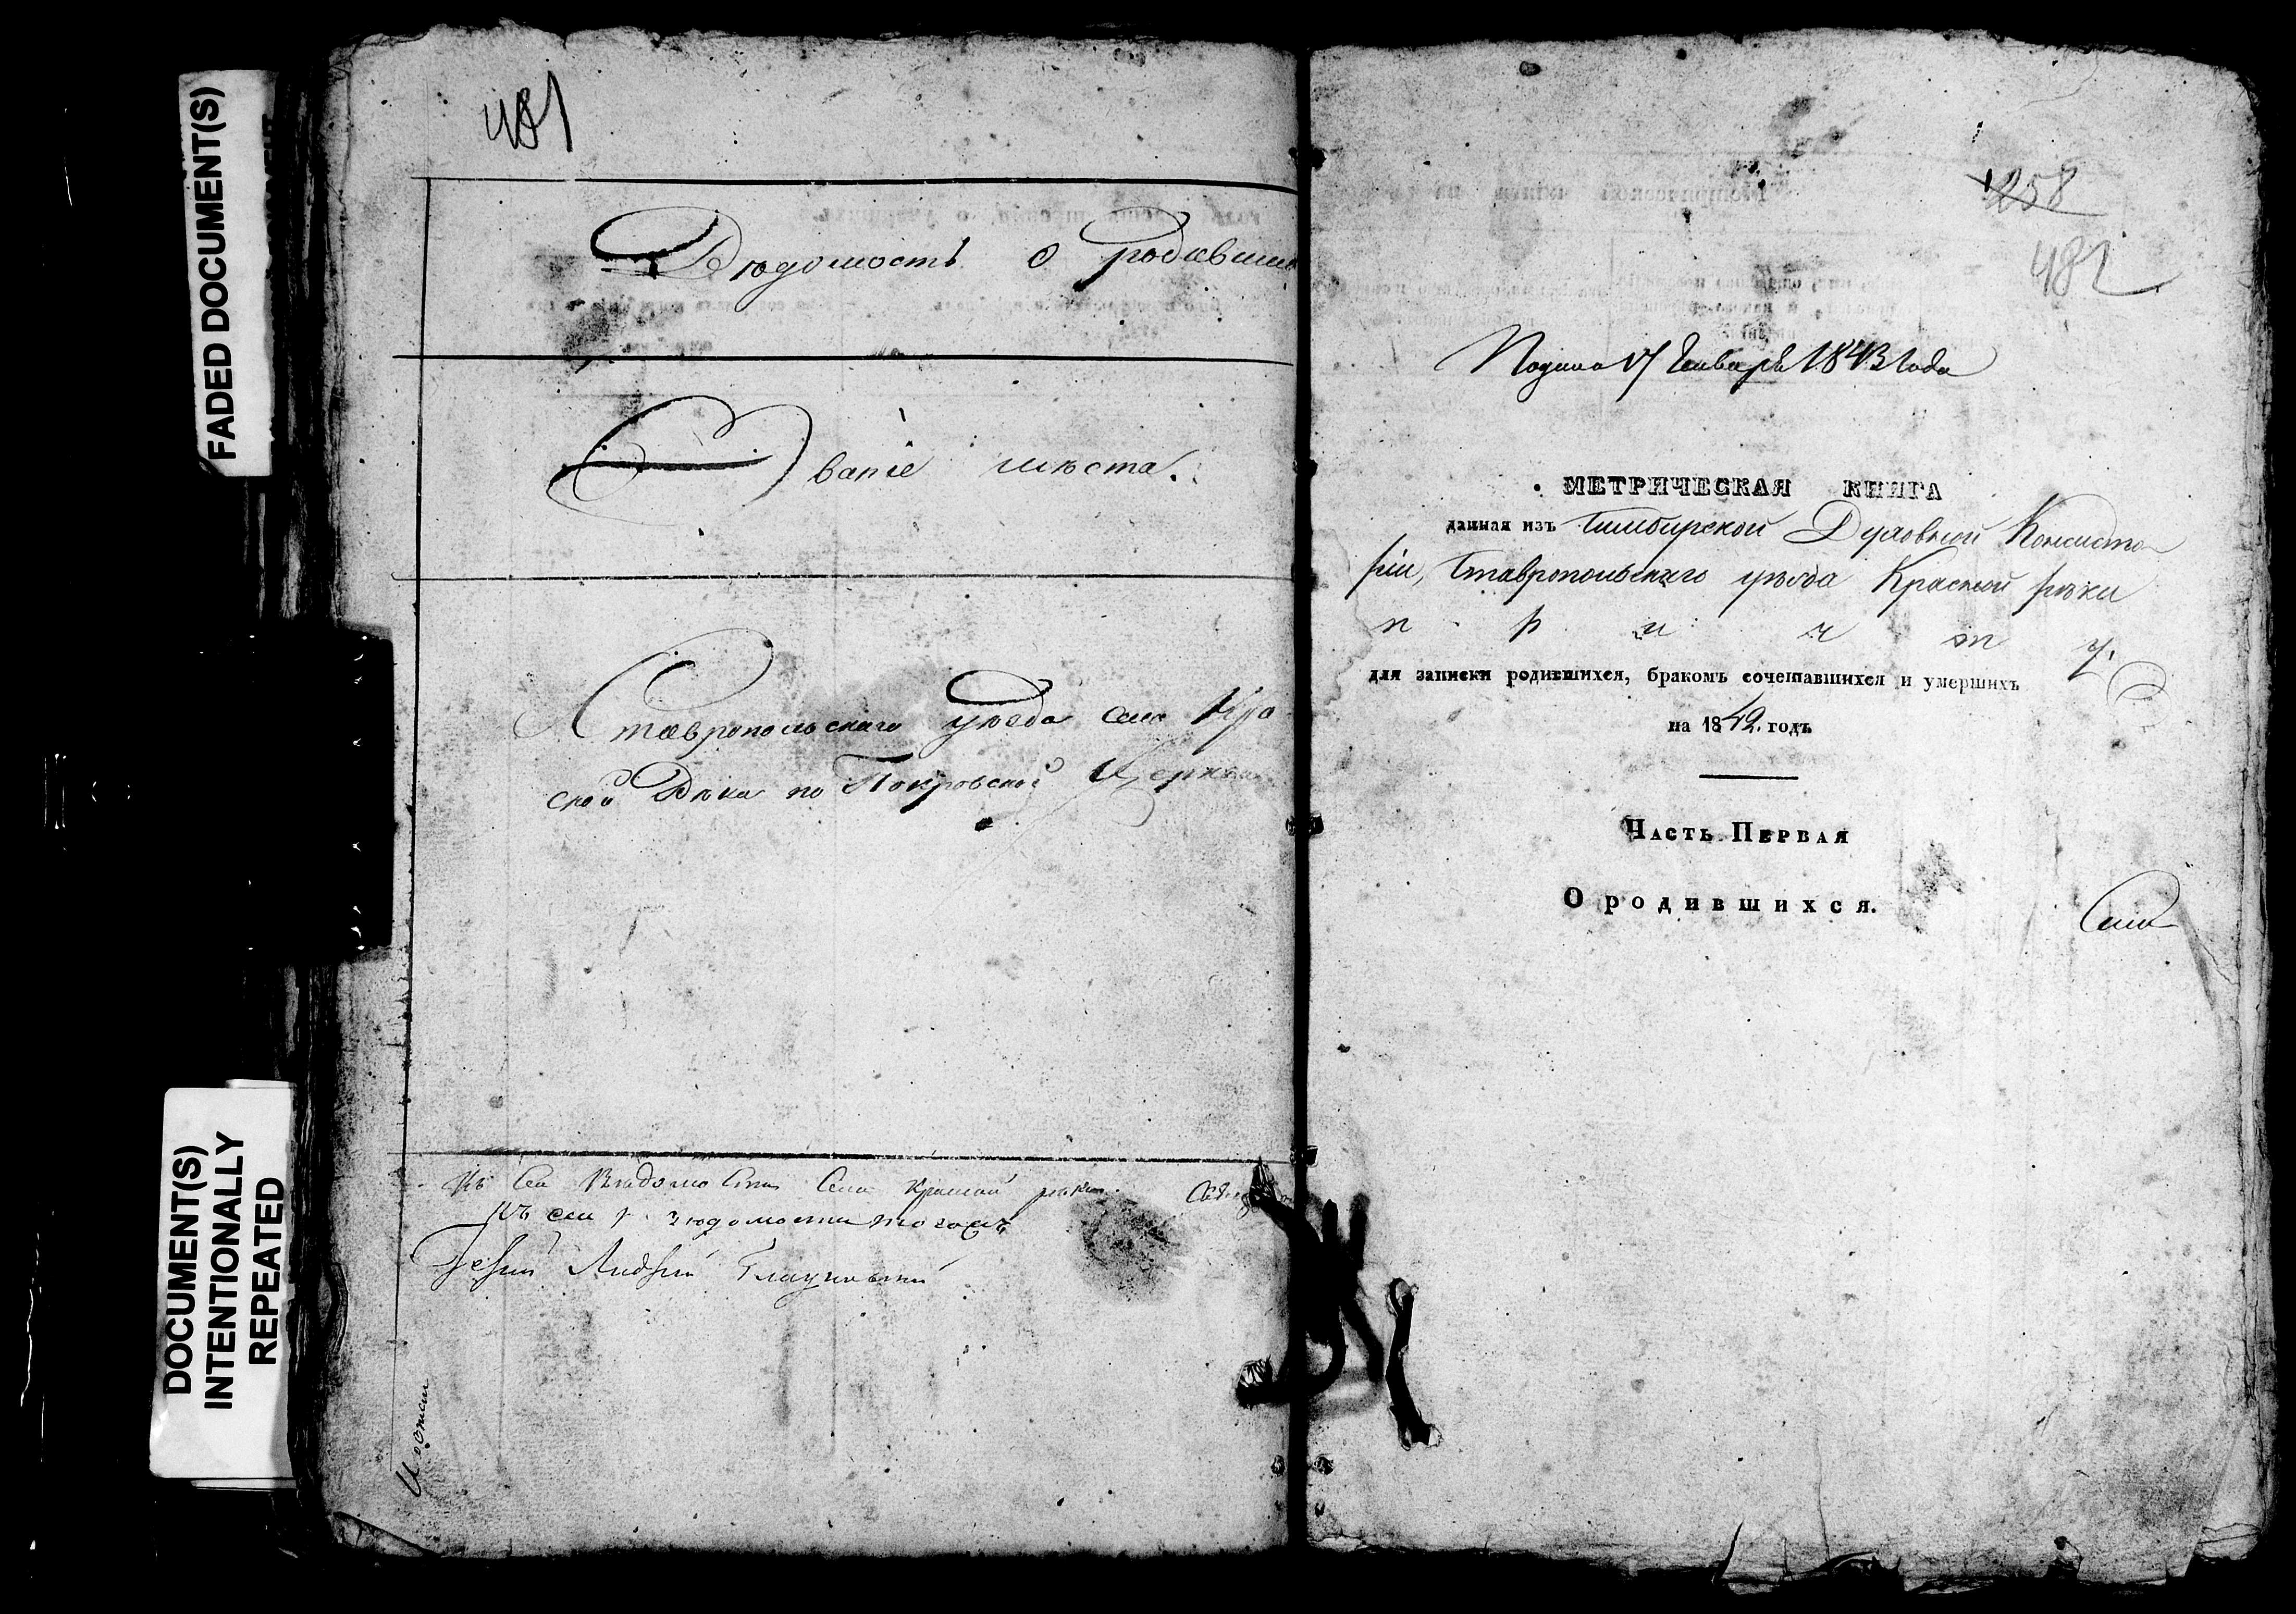 FADED DOCUMENT(S)
DOCUMENT(S)
INTENTIONALLY
REPEATED
481
Вѣдомость о родивши
Званіе мѣста.
Ставропольскаго уѣзда села Кра
сной Рѣки по Покровской Церкви
Къ сей Вѣдомости Села Красной рѣки
Къ сей вѣдомости
Іерей Андрей
258
482
Подана 17 Генваря 1843 Года
МЕТРИЧЕСКАЯ КНИГА
данная изъ Симбирской Духовной Консисто
ріи, Ставропольскаго уѣзда Красной рѣки
п р и ч т у.
для записки родившихся, бракомъ сочетавшихся и умершихъ
на 1842. годъ
Часть Первая
О родившихся.